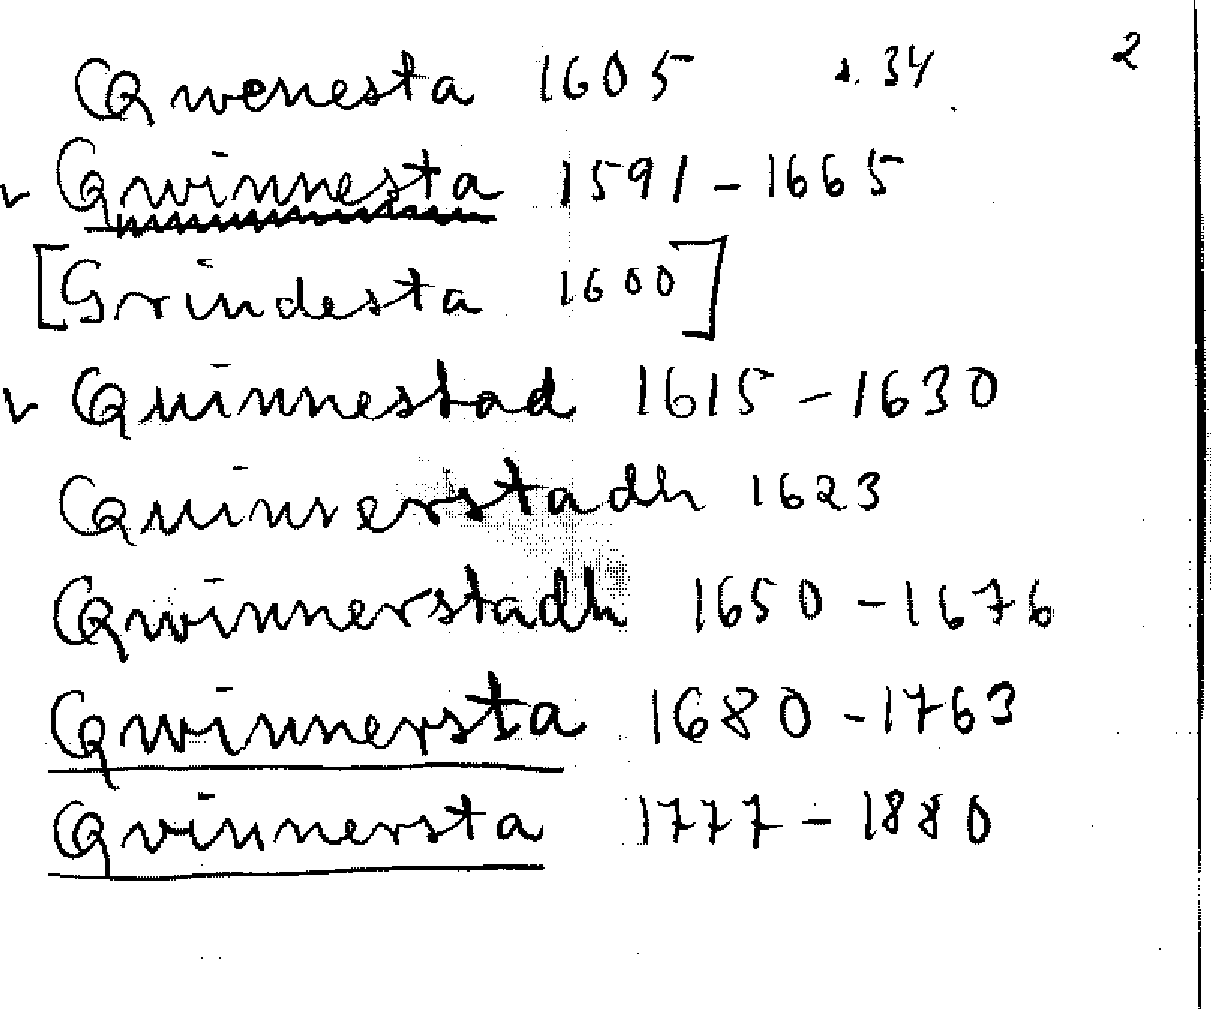 Qwenesta 1605 s. 34 2
Qwinnesta 1591 – 1665
[Grindesta 1600]
Quinnestad 1615 – 1630
Quinnerstadh 1623
Qwinnerstadh 1650 – 1676
Qwinnersta 1680 – 1763
Qvinnersta 1777 – 1880